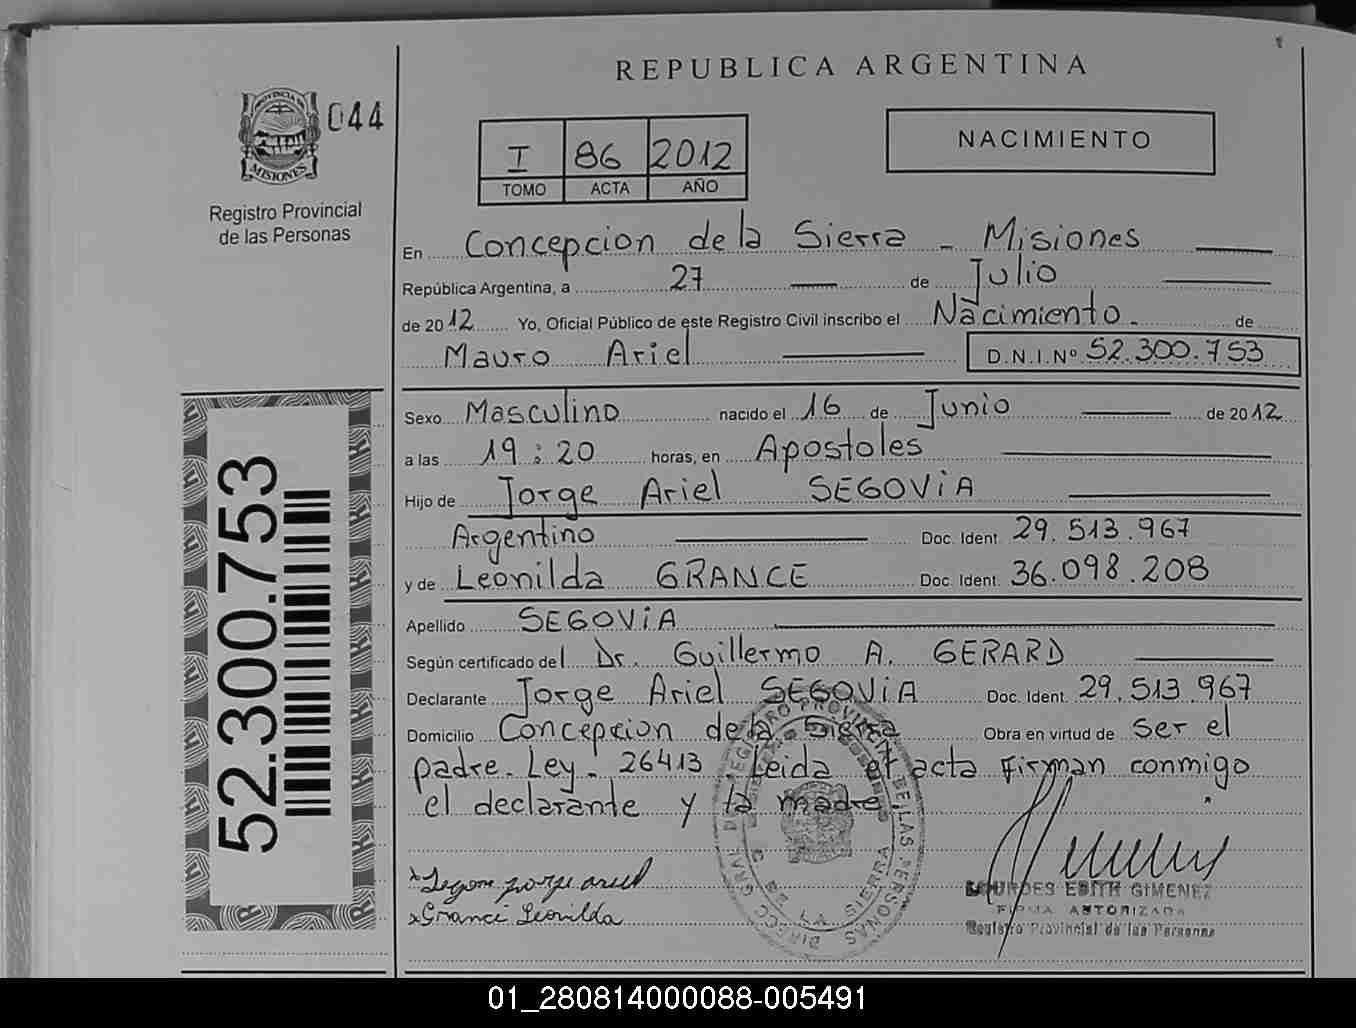 REPUBLICA ARGENTINA
044
PROVINCIA DE
MISIONES
Registro Provincial
de las Personas
I 86 2012
TOMO ACTA AÑO
NACIMIENTO
En Concepcion de la Sierra - Misiones
República Argentina, a 27 de Julio
de 2012 Yo, Oficial Público de este Registro Civil inscribo el Nacimiento. de
Mauro Ariel D.N.I.Nº 52.300.753
Sexo Masculino nacido el 16 de Junio de 2012
a las 19:20 horas, en Apostoles
Hijo de Jorge Ariel SEGOVIA
Argentino Doc. Ident. 29.513.967
y de Leonilda GRANCE Doc. Ident. 36.098.208
Apellido SEGOVIA
Según certificado del Dr. Guillermo A. GERARD
Declarante Jorge Ariel SEGOVIA Doc. Ident. 29.513.967
Domicilio Concepcion de la Sierra Obra en virtud de ser el
padre. Ley. 26413 Leida el acta Firman conmigo
el declarante y la madre.
52.300.753
x Segovi jorge ariel
x Grance Leonilda
LOURDES EDITH GIMENEZ
FIRMA AUTORIZADA
Registro Provincial de las Personas
01_280814000088-005491